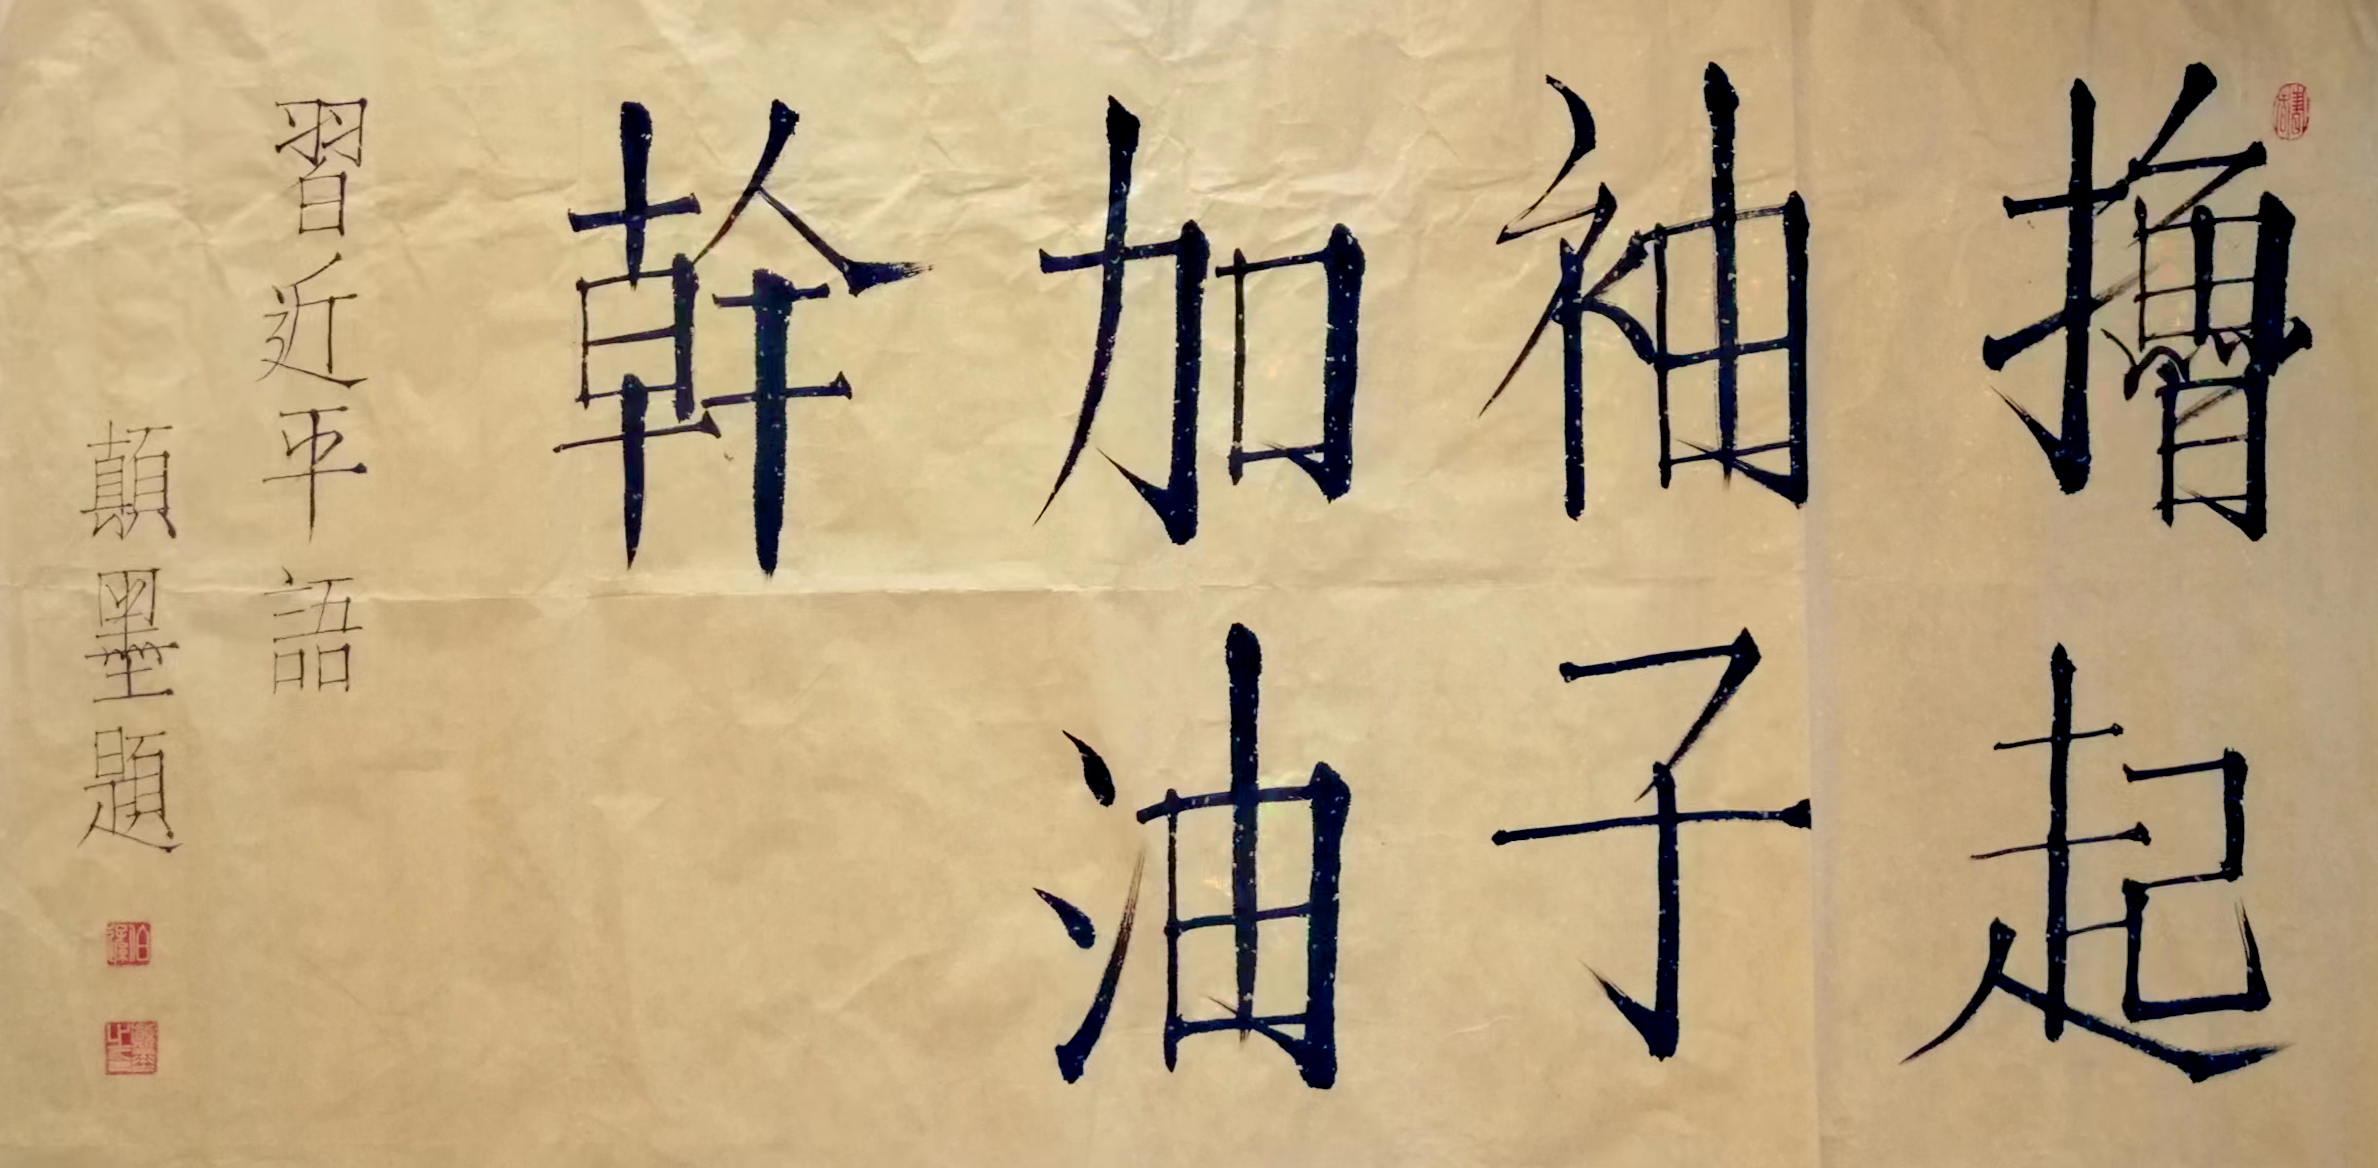 擼起
袖子
加油
幹
習近平語
顛墨題